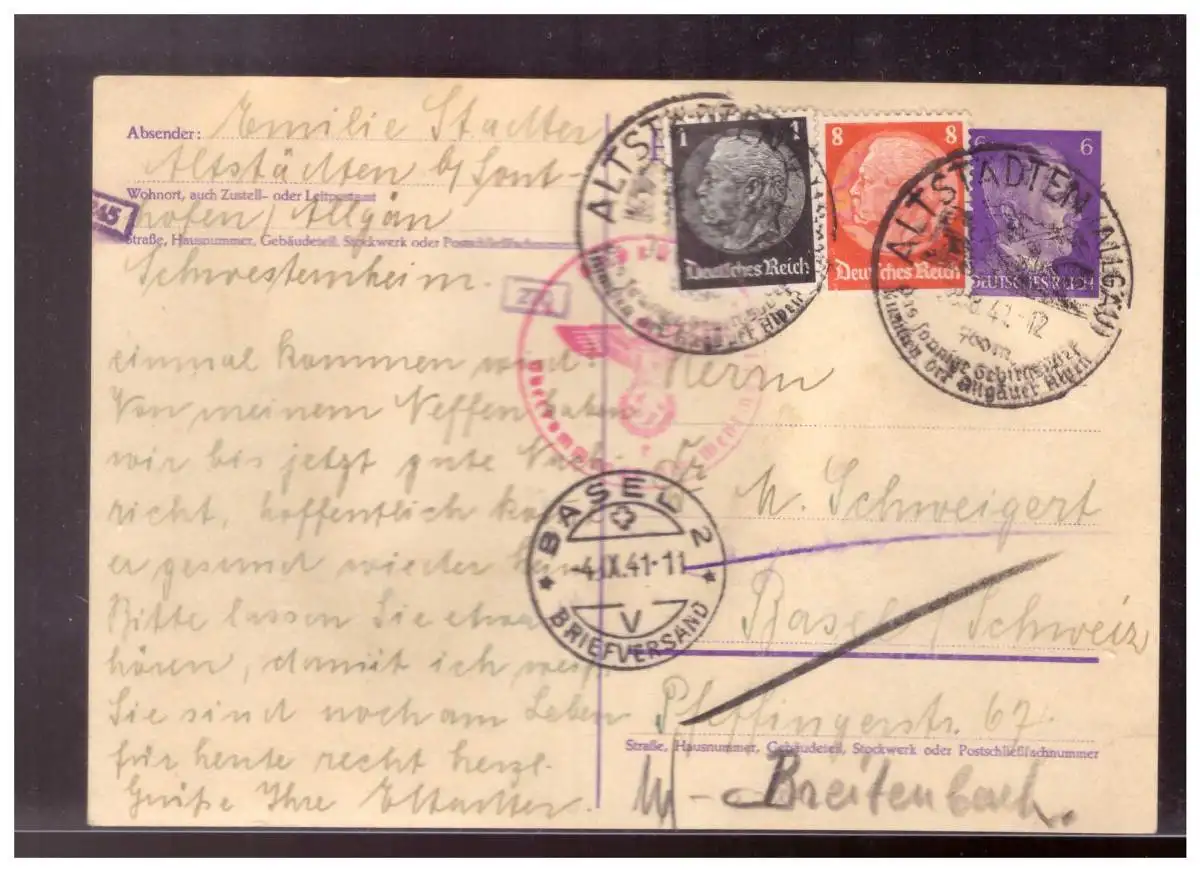 Absender: Emilie Stadter
Altstädten b/ Sont-
Wohnort, auch Zustell- oder Leitpostamt
hofen / Allgäu
Straße, Hausnummer, Gebäudeteil, Stockwerk oder Postschließfachnummer
Schwesternheim.
245
einmal kommen wird!
Von meinem Neffen haben
wir bis jetzt gute Nach-
richt, hoffentlich
er gesund wieder
Bitte lassen Sie etwas
hören, damit ich weiß,
Sie sind noch am Leben
für heute recht herzl.
Grüße Ihre EStadter.
1 1
Deutsches Reich
8 8
Deutsches Reich
6 6
DEUTSCHES REICH
ALTSTÄDTEN
ALTSTÄDTEN (ALLGÄU)
41-12
700m
Das sonnige Gebirgsdorf
Allgäuer Alpen
BASEL 2
-4.IX.41-11
V
BRIEFVERSAND
Herrn
Fr
M. Schweigert
Basel / Schweiz
Pfeffingerstr. 67.
Straße, Hausnummer, Gebäudeteil, Stockwerk oder Postschließfachnummer
Breitenbach.